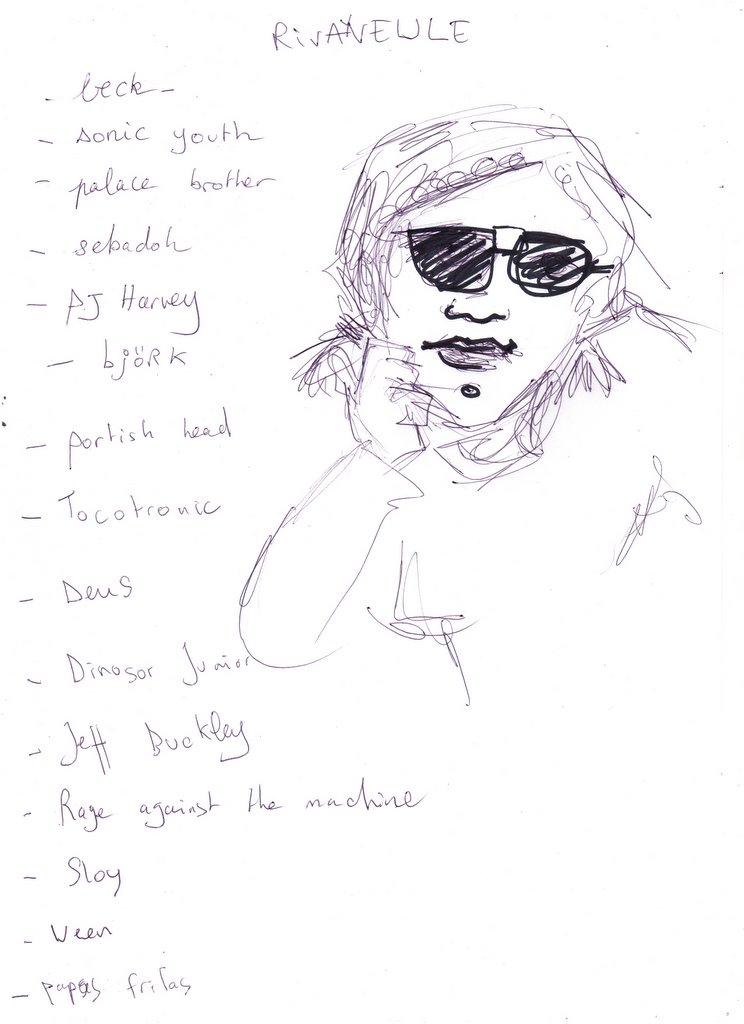 RivANEWLE
- beck -
- sonic youth
- palace brother
- sebadoh
- PJ Harvey
- björk
- portish head
- Tocotronic
- Deus
- Dinosor Junior
- Jeff Buckley
- Rage against the machine
- Sloy
- Ween
- papas fritas